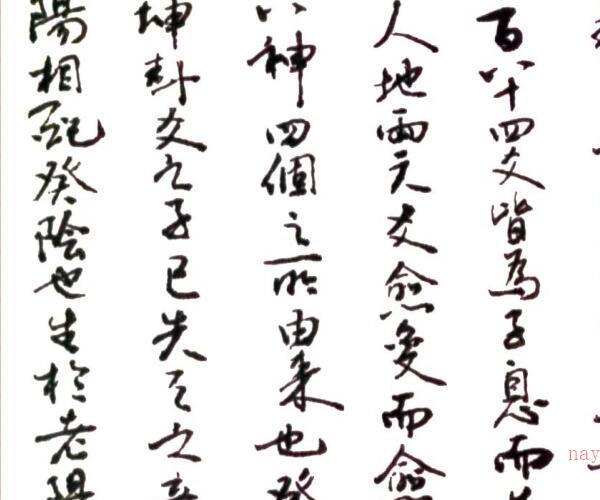 百八十四爻皆為子息而
人地兩元爻愈變而愈
八神四個之一所由来也癸
坤卦爻之子已失之
陽相配癸陰也生於老陽
nay